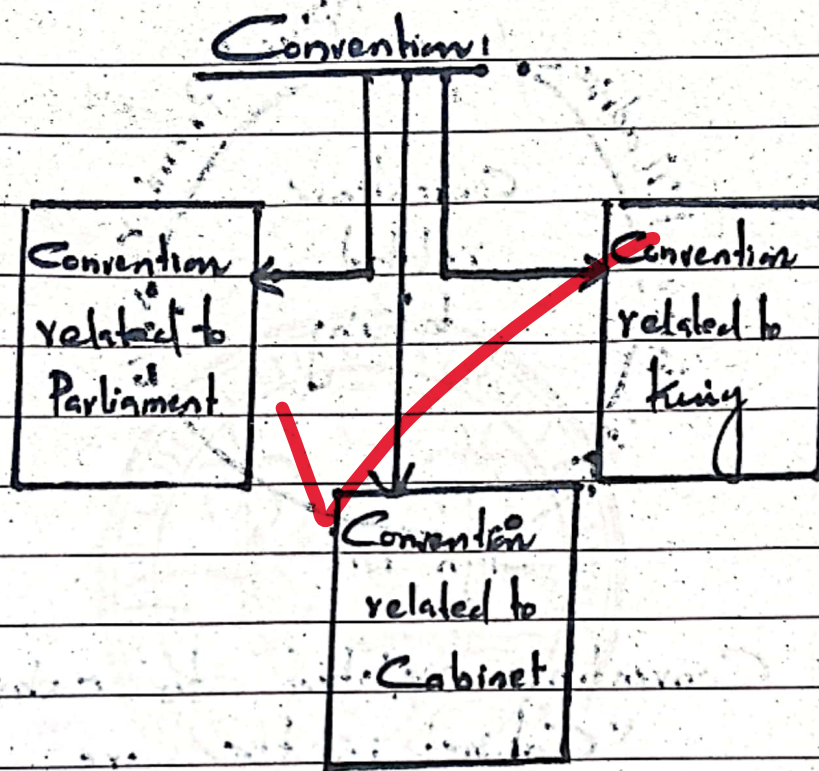 Conventions
Convention
related to
Parliament
Convention
related to
King
Convention
related to
Cabinet